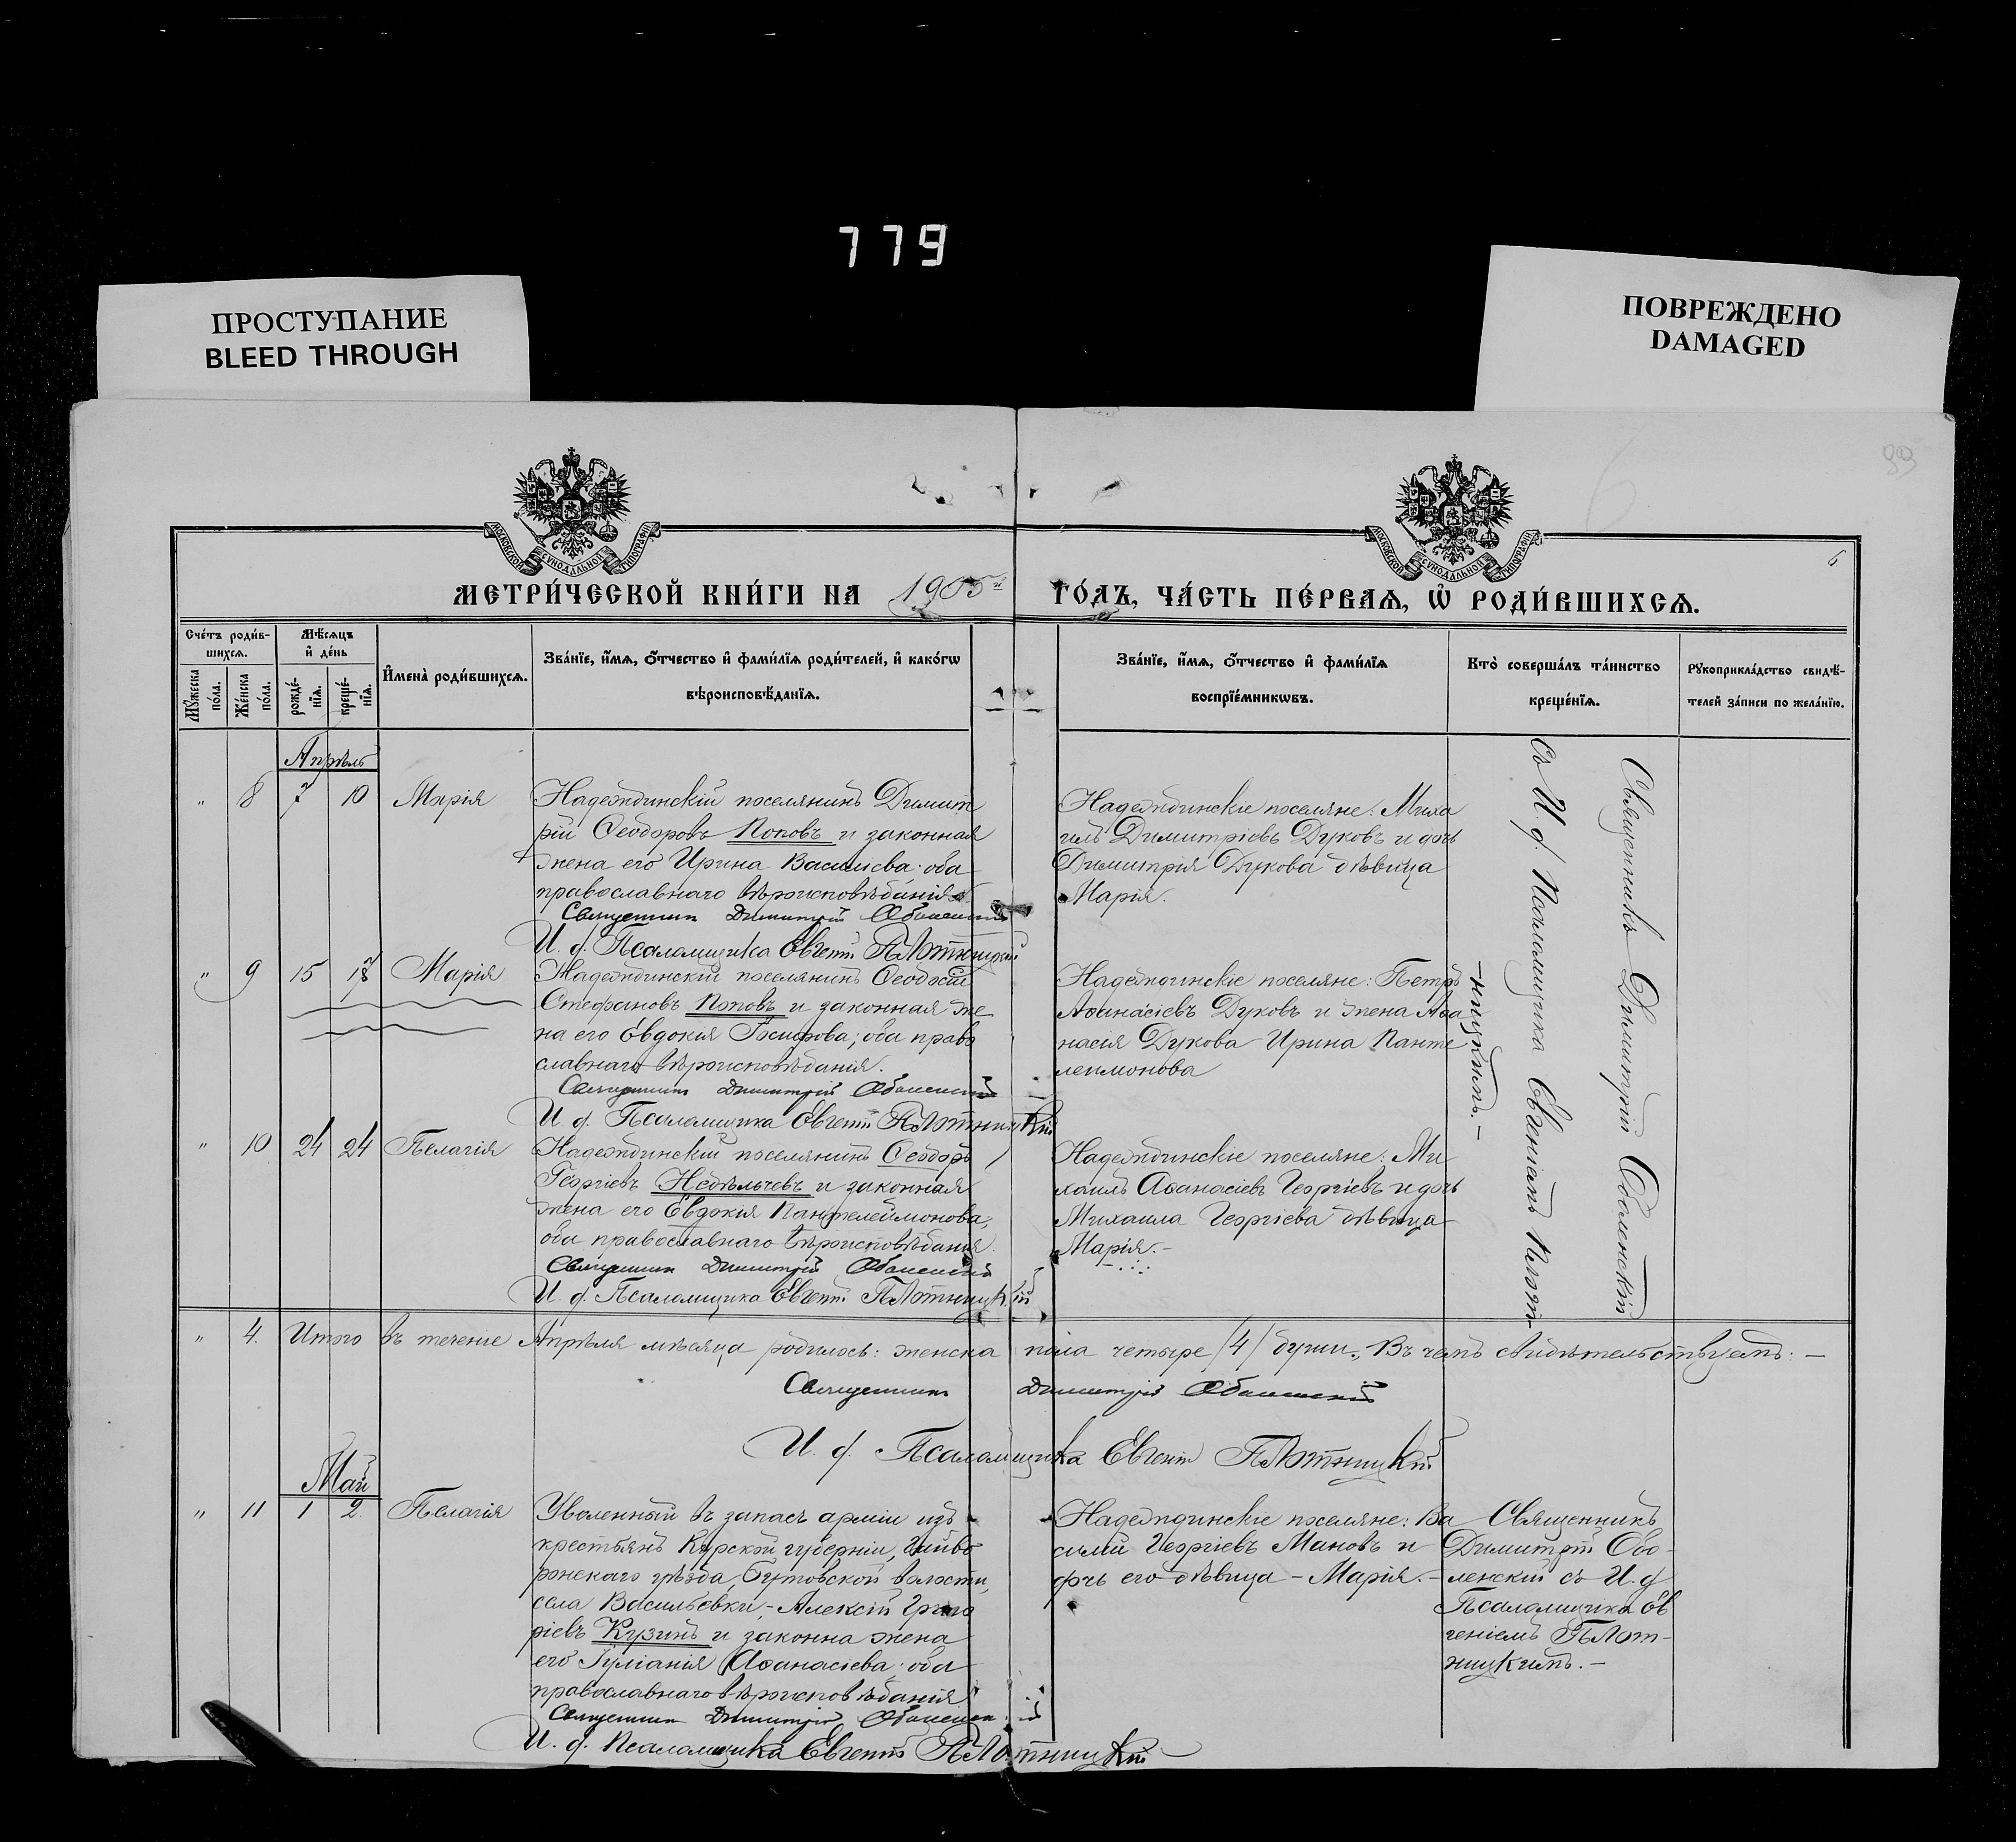 779
ПРОСТУПАНИЕ
BLEED THROUGH
ПОВРЕЖДЕНО
DAMAGED
89
6
МОСКОВСКОЙ СѴНОДАЛЬНОЙ ТИПОГРАФІИ
МОСКОВСКОЙ СѴНОДАЛЬНОЙ ТИПОГРАФІИ
МЕТРИ́ЧЕСКОЙ КНИ́ГИ НА 1905й ГО́ДЪ, ЧА́СТЬ ПЕ́РВАѦ, Ѡ҆ РОДИ́ВШИХСѦ.
Сче́тъ роди́вшихсѧ.
Мꙋ́жеска по́ла.
Же́нска по́ла.
Мѣ́сѧцъ и҆ де́нь
рожде́нїѧ.
креще́нїѧ.
И҆мена̀ роди́вшихсѧ.
Зва́нїе, и҆́мѧ, ѻ҆́тчество и҆ фами́лїѧ роди́телей, и҆ како́гѡ
вѣроисповѣ́данїѧ.
Зва́нїе, и҆́мѧ, ѻ҆́тчество и҆ фами́лїѧ
воспрїе́мникѡвъ.
Кто̀ соверша́лъ та́инство
креще́нїѧ.
Рꙋкоприкла́дство свидѣ́-
телей за́писи по жела́нїю.
Апрѣль
" 8 7 10 Марія
Надеждинскій поселянинъ Димит
рій Ѳеодоровъ Поповъ и законная
жена его Ирина Васильева; оба
православнаго вѣроисповѣданія.
Священникъ Димитрій Оболенскій
И. д. Псаломщика Евгеній Плотницкій
Надеждинскіе поселяне: Миха
илъ Димитріевъ Дуковъ и дочь
Димитрія Дукова дѣвица
Марія.
Священникъ Димитрій Оболенскій
съ И. д. Псаломщика Евгеніемъ Плот
-ницкимъ.-
" 9 15 17 Марія
Надеждинскій поселянинъ Ѳеодосій
Стефановъ Поповъ и законная же
на его Евдокія Іосифова; оба право
славнаго вѣроисповѣданія.
Священникъ Димитрій Оболенскій
И. д. Псаломщика Евгеній Плотницкій
Надеждинскіе поселяне: Петръ
Аѳанасіевъ Дуковъ и жена Аѳа
насія Дукова Ирина Панте
леимонова
" 10 24 24 Пелагія
Надеждинскій поселянинъ Ѳеодоръ
Георгіевъ Недѣльчевъ и законная
жена его Евдокія Пантелеймонова,
оба православнаго вѣроисповѣданія.
Священникъ Димитрій Оболенскій
И. д. Псаломщика Евгеній Плотницкій
Надеждинскіе поселяне: Ми
хаилъ Аѳанасіевъ Георгіевъ и дочь
Михаила Георгіева дѣвица
Марія.-
" 4. Итого въ теченіе Апрѣля мѣсяца родилось: женска пола четыре /4/ души. Въ чемъ свидѣтельствуемъ: -
Священникъ Димитрій Оболенскій
И. д. Псаломщика Евгеній Плотницкій
Май
" 11 1 2. Пелагія
Уволенный въ запасъ арміи изъ
крестьянъ Курской губерніи, Грайво
ронскаго уѣзда, Бутовской волости,
села Васильевки,- Алексій Григо
ріевъ Кузинъ и законна жена
его Іуліанія Аѳанасіева; оба
православнаго вѣроисповѣданія
Священникъ Димитрій Оболенскій
И. д. Псаломщика Евгеній Плотницкій
Надеждинскіе поселяне: Ва
силій Георгіевъ Мановъ и
дочь его дѣвица - Марія.-
Священникъ
Димитрій Обо-
ленскій съ И. д
Псаломщика Ев
геніемъ Плот-
ницкимъ.-